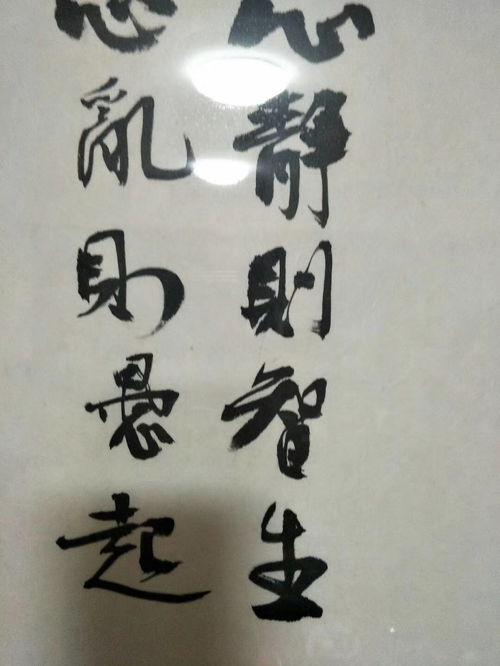 心靜則智生
心亂則愚起